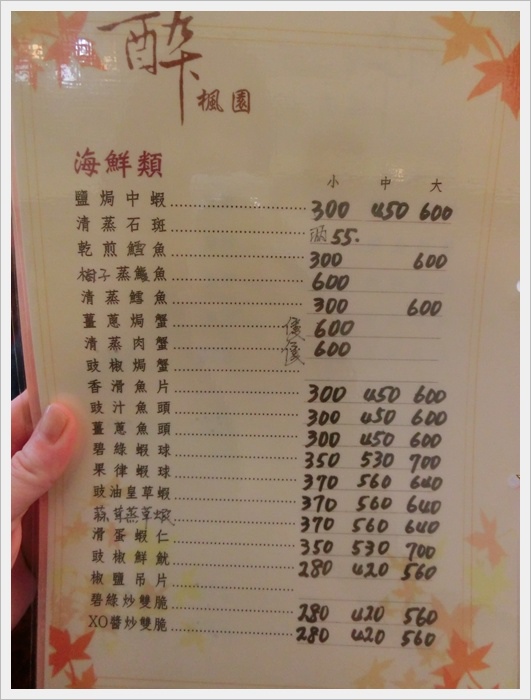 醉
楓園
海鮮類
小 中 大
鹽焗中蝦 300 450 600
清蒸石斑 55.
乾煎鱈魚 300 600
樹子蒸鱸魚 600
清蒸鱈魚 300 600
薑蔥焗蟹 600
清蒸肉蟹 600
豉椒焗蟹
香滑魚片 300 450 600
豉汁魚頭 300 450 600
薑蔥魚頭 300 450 600
碧綠蝦球 350 530 700
果律蝦球 370 560 640
豉油皇草蝦 370 560 640
蒜茸蒸草蝦 370 560 640
滑蛋蝦仁 350 530 700
豉椒鮮魷 280 420 560
椒鹽吊片
碧綠炒雙脆 280 420 560
XO醬炒雙脆 280 420 560